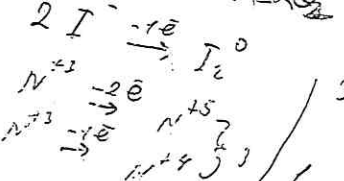 2 I⁻ -1ē → I₂⁰
N⁺³ -2ē → N⁺⁵
N⁺³ -1ē → N⁺⁴ 3